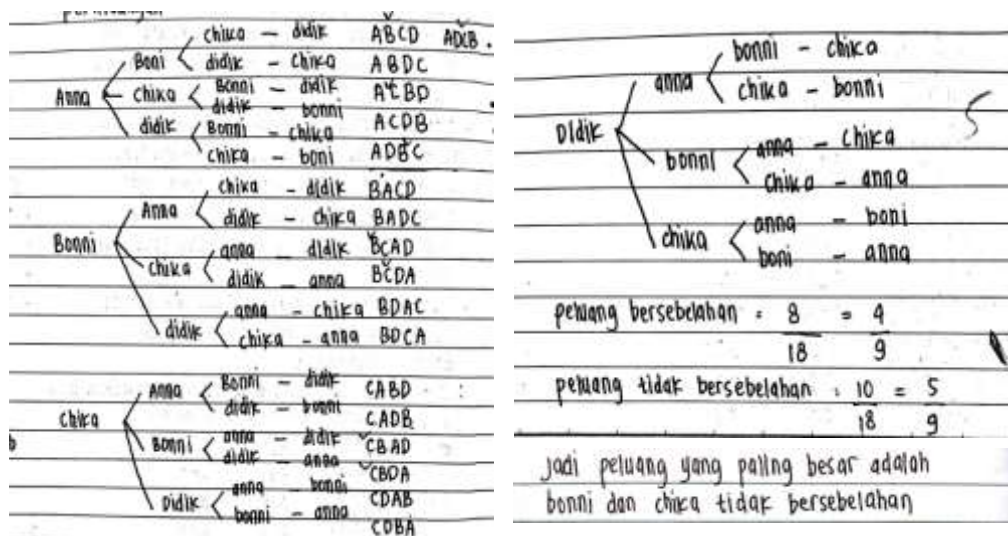 chika - didik ABCD ADCB.
Boni didik - chika ABDC
Anna chika Bonni - didik ACBD
didik - bonni ACDB
didik Bonni - chika
chika - boni ADBC
chika - didik BACD
Anna didik - chika BADC
Bonni chika anna - didik BCAD
didik - anna BCDA
didik anna - chika BDAC
chika - anna BDCA
Anna Bonni - didik CABD
didik - bonni CADB
Chika Bonni anna - didik CBAD
didik - anna CBDA
Didik anna - bonni CDAB
bonni - anna CDBA
bonni - chika
anna chika - bonni
DIdik
bonni anna - chika
chika - anna
chika anna - boni
boni - anna
peluang bersebelahan = 8/18 = 4/9
peluang tidak bersebelahan = 10/18 = 5/9
jadi peluang yang paling besar adalah
bonni dan chika tidak bersebelahan